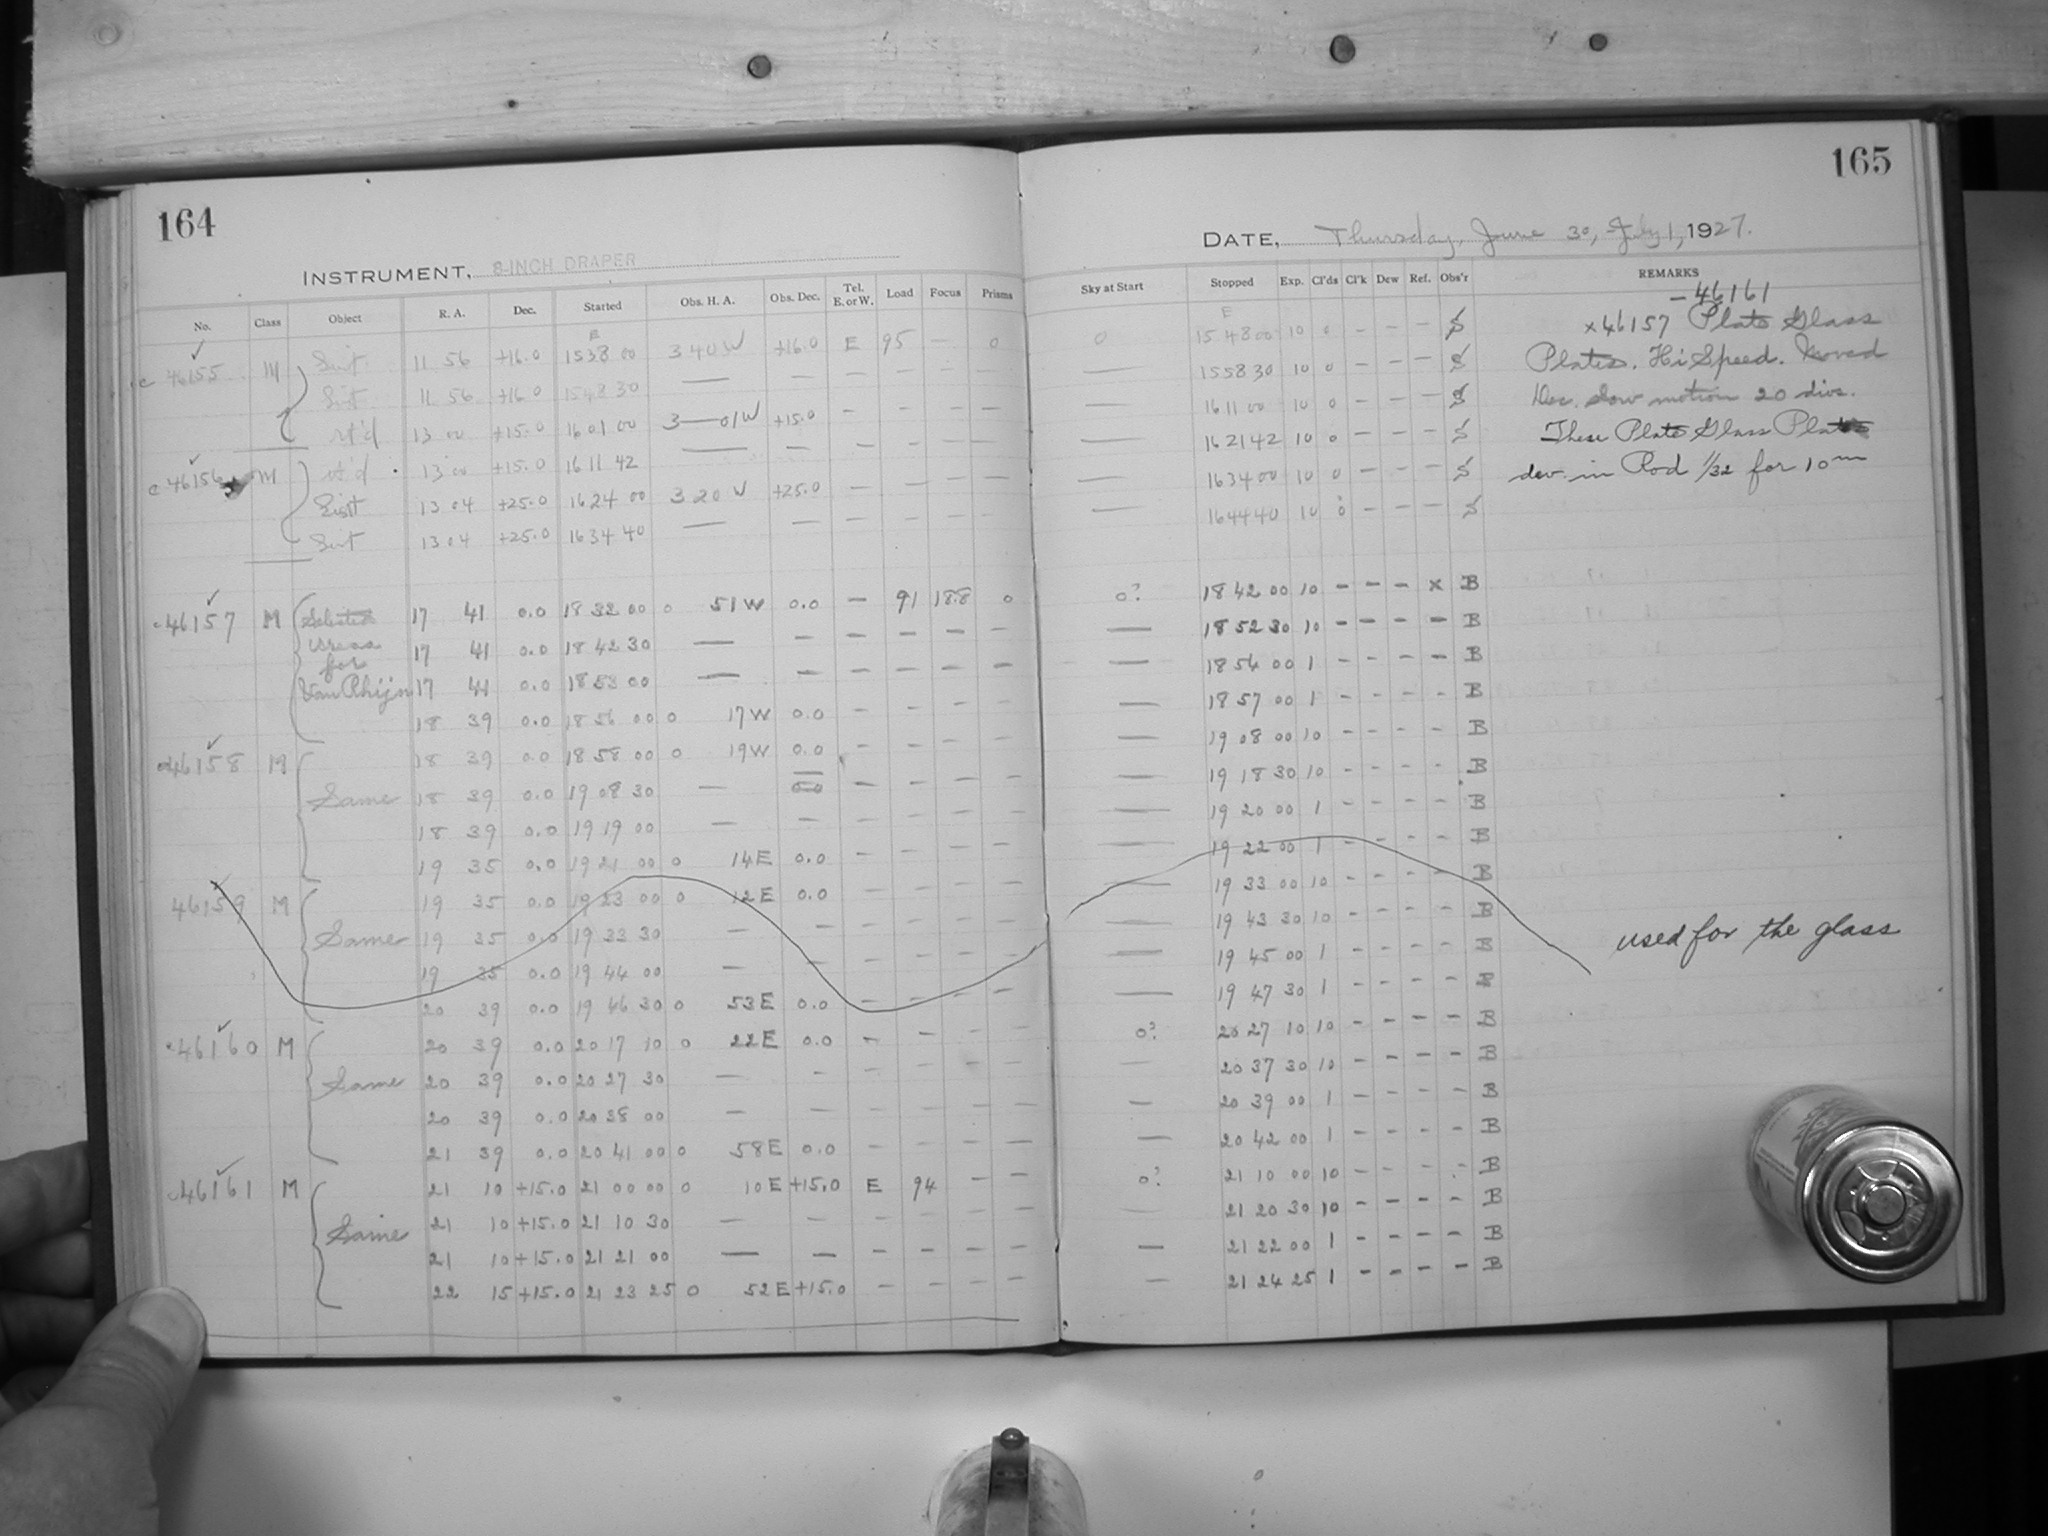 164
INSTRUMENT, 8-INCH DRAPER
No. Class Object R. A. Dec. Started Obs. H. A. Obs. Dec. Tel. E. or W. Load Focus Prisms
E
c 46155 M 11 56 +16.0 15 38 00 3 40 W +16.0 E 95 — 0
11 56 +16.0 15 48 30 — — — — — —
13 00 +15.0 16 01 00 3 — 01 W +15.0 — — — —
c 46156 M 13 00 +15.0 16 11 42 — — — — — —
13 04 +25.0 16 24 00 3 20 W +25.0 — — — —
13 04 +25.0 16 34 40 — — — — — —
46157 M Selected 17 41 0.0 18 32 00 0 51 W 0.0 — 91 18.8 0
areas 17 41 0.0 18 42 30 — — — — — —
for
Van Rhijn 17 41 0.0 18 53 00 — — — — — —
18 39 0.0 18 56 00 0 17 W 0.0 — — — —
46158 M 18 39 0.0 18 58 00 0 19 W 0.0 — — — —
Same 18 39 0.0 19 08 30 — 0.0 — — — —
18 39 0.0 19 19 00 — — — — — —
19 35 0.0 19 21 00 0 14 E 0.0 — — — —
46159 M 19 35 0.0 19 23 00 0 12 E 0.0 — — — —
Same 19 35 0.0 19 33 30 — — — — — —
19 35 0.0 19 44 00 — — — — — —
20 39 0.0 19 46 30 0 53 E 0.0 — — — —
46160 M 20 39 0.0 20 17 10 0 22 E 0.0 — — — —
Same 20 39 0.0 20 27 30 — — — — — —
20 39 0.0 20 38 00 — — — — — —
21 39 0.0 20 41 00 0 58 E 0.0 — — — —
46161 M 21 10 +15.0 21 00 00 0 10 E +15.0 E 94 — —
Same 21 10 +15.0 21 10 30 — — — — — —
21 10 +15.0 21 21 00 — — — — — —
22 15 +15.0 21 23 25 0 52 E +15.0 — — — —
165
DATE, Thursday, June 30, July 1, 1927.
Sky at Start Stopped Exp. Cl'ds Cl'k Dew Ref. Obs'r REMARKS
E
0 15 48 00 10 0 — — — S
— 15 58 30 10 0 — — — S
— 16 11 00 10 0 — — — S
— 16 21 42 10 0 — — — S
— 16 34 00 10 0 — — — S
— 16 44 40 10 0 — — — S
0? 18 42 00 10 — — — x B
— 18 52 30 10 — — — — B
— 18 54 00 1 — — — — B
— 18 57 00 1 — — — — B
— 19 08 00 10 — — — — B
— 19 18 30 10 — — — — B
— 19 20 00 1 — — — — B
— 19 22 00 1 — — — — B
— 19 33 00 10 — — — — B
— 19 43 30 10 — — — — B
— 19 45 00 1 — — — — B
— 19 47 30 1 — — — — B
0? 20 27 10 10 — — — — B
— 20 37 30 10 — — — — B
— 20 39 00 1 — — — — B
— 20 42 00 1 — — — — B
0? 21 10 00 10 — — — — B
21 20 30 10 — — — — B
— 21 22 00 1 — — — — B
— 21 24 25 1 — — — — B
— 46161
x 46157 Plate Glass
Plates. Hi Speed. Moved
Dec. slow motion 20 divs.
These Plate Glass Plates
dev. in Rod 1/32 for 10m
used for the glass